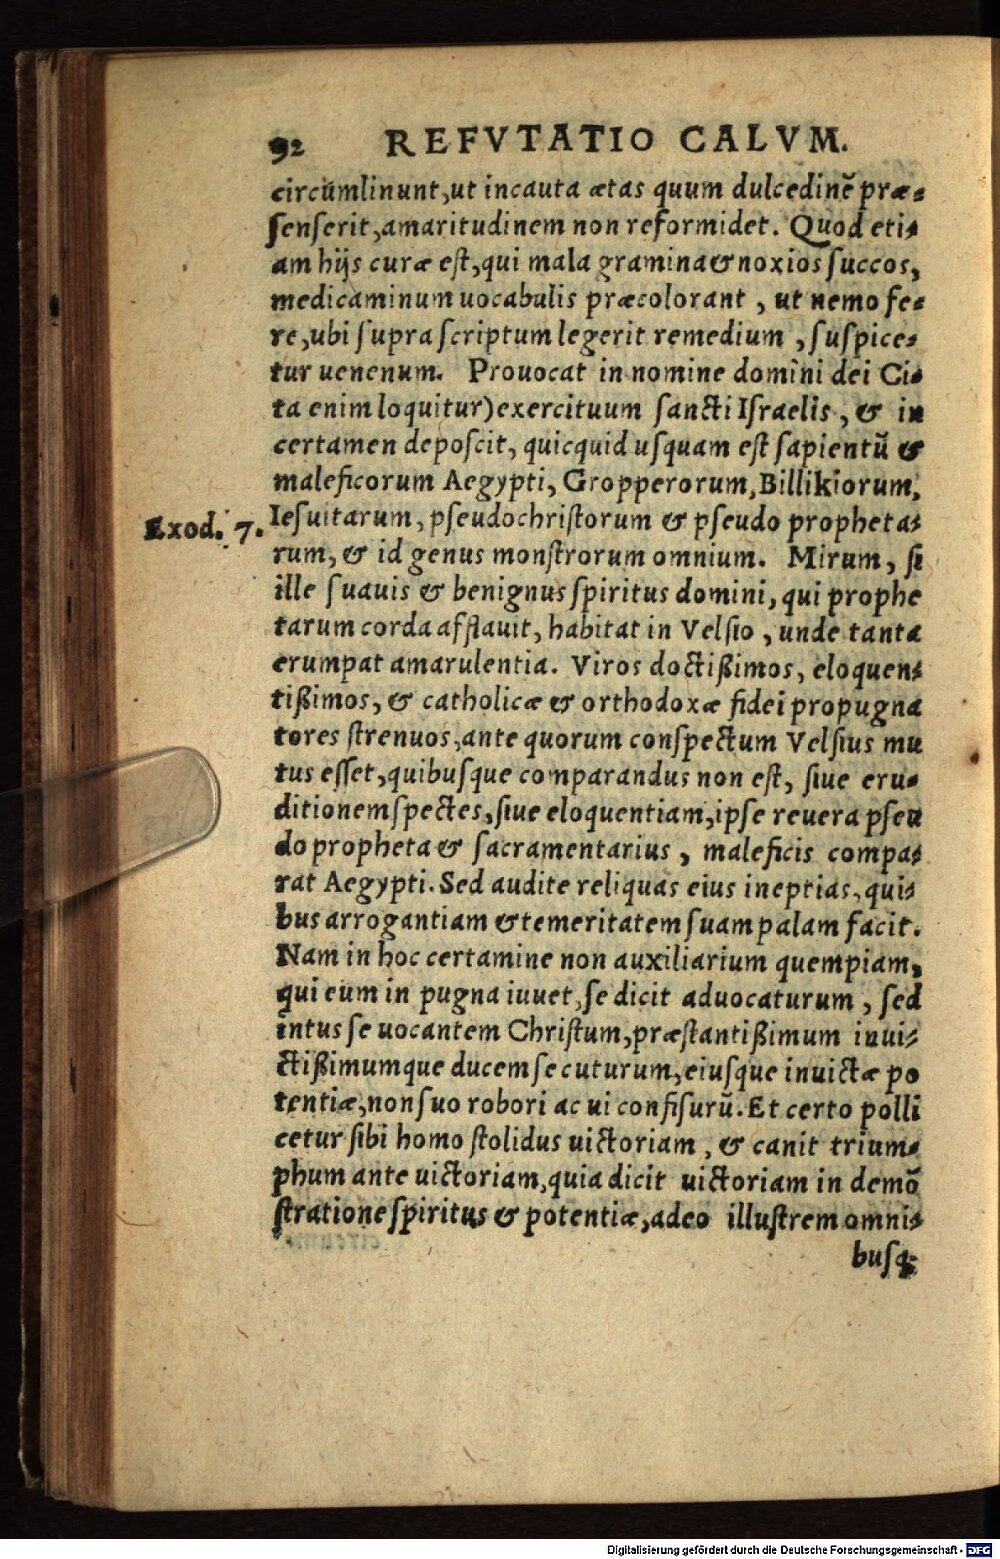 92 REFVTATIO CALVM.
circũmlinunt, ut incauta ætas quum dulcedinẽ præ-
ſenſerit, amaritudinem non reformidet. Quod eti-
am hijs curæ eſt, qui mala gramina & noxios ſuccos,
medicaminum uocabulis præcolorant, ut nemo fe-
re, ubi ſupra ſcriptum legerit remedium, ſuſpice-
tur uenenum. Prouocat in nomine domini dei (i-
ta enim loquitur) exercituum ſancti Iſraelis, & in
certamen depoſcit, quicquid uſquam eſt ſapientũ &
maleficorum Aegypti, Gropperorum, Billikiorum,
Exod. 7. Ieſuitarum, pſeudochriſtorum & pſeudo propheta-
rum, & id genus monſtrorum omnium. Mirum, ſi
ille ſuauis & benignus ſpiritus domini, qui prophe
tarum corda afflauit, habitat in Velſio, unde tanta
erumpat amarulentia. Viros doctißimos, eloquen-
tißimos, & catholicæ & orthodoxæ fidei propugna
tores ſtrenuos, ante quorum conſpectum Velſius mu
tus eſſet, quibuſque comparandus non eſt, ſiue eru-
ditionem ſpectes, ſiue eloquentiam, ipſe reuera pſeu
do propheta & ſacramentarius, maleficis compa-
rat Aegypti. Sed audite reliquas eius ineptias, qui-
bus arrogantiam & temeritatem ſuam palam facit.
Nam in hoc certamine non auxiliarium quempiam,
qui eum in pugna iuuet, ſe dicit aduocaturum, ſed
intus ſe uocantem Chriſtum, præſtantißimum inui-
ctißimumque ducem ſecuturum, eiuſque inuictæ po
tentiæ, non ſuo robori ac ui confiſurũ. Et certo polli
cetur ſibi homo ſtolidus uictoriam, & canit trium-
phum ante uictoriam, quia dicit uictoriam in demõ
ſtratione ſpiritus & potentiæ, adeo illuſtrem omni-
buſq;
Digitalisierung gefördert durch die Deutsche Forschungsgemeinschaft - DFG